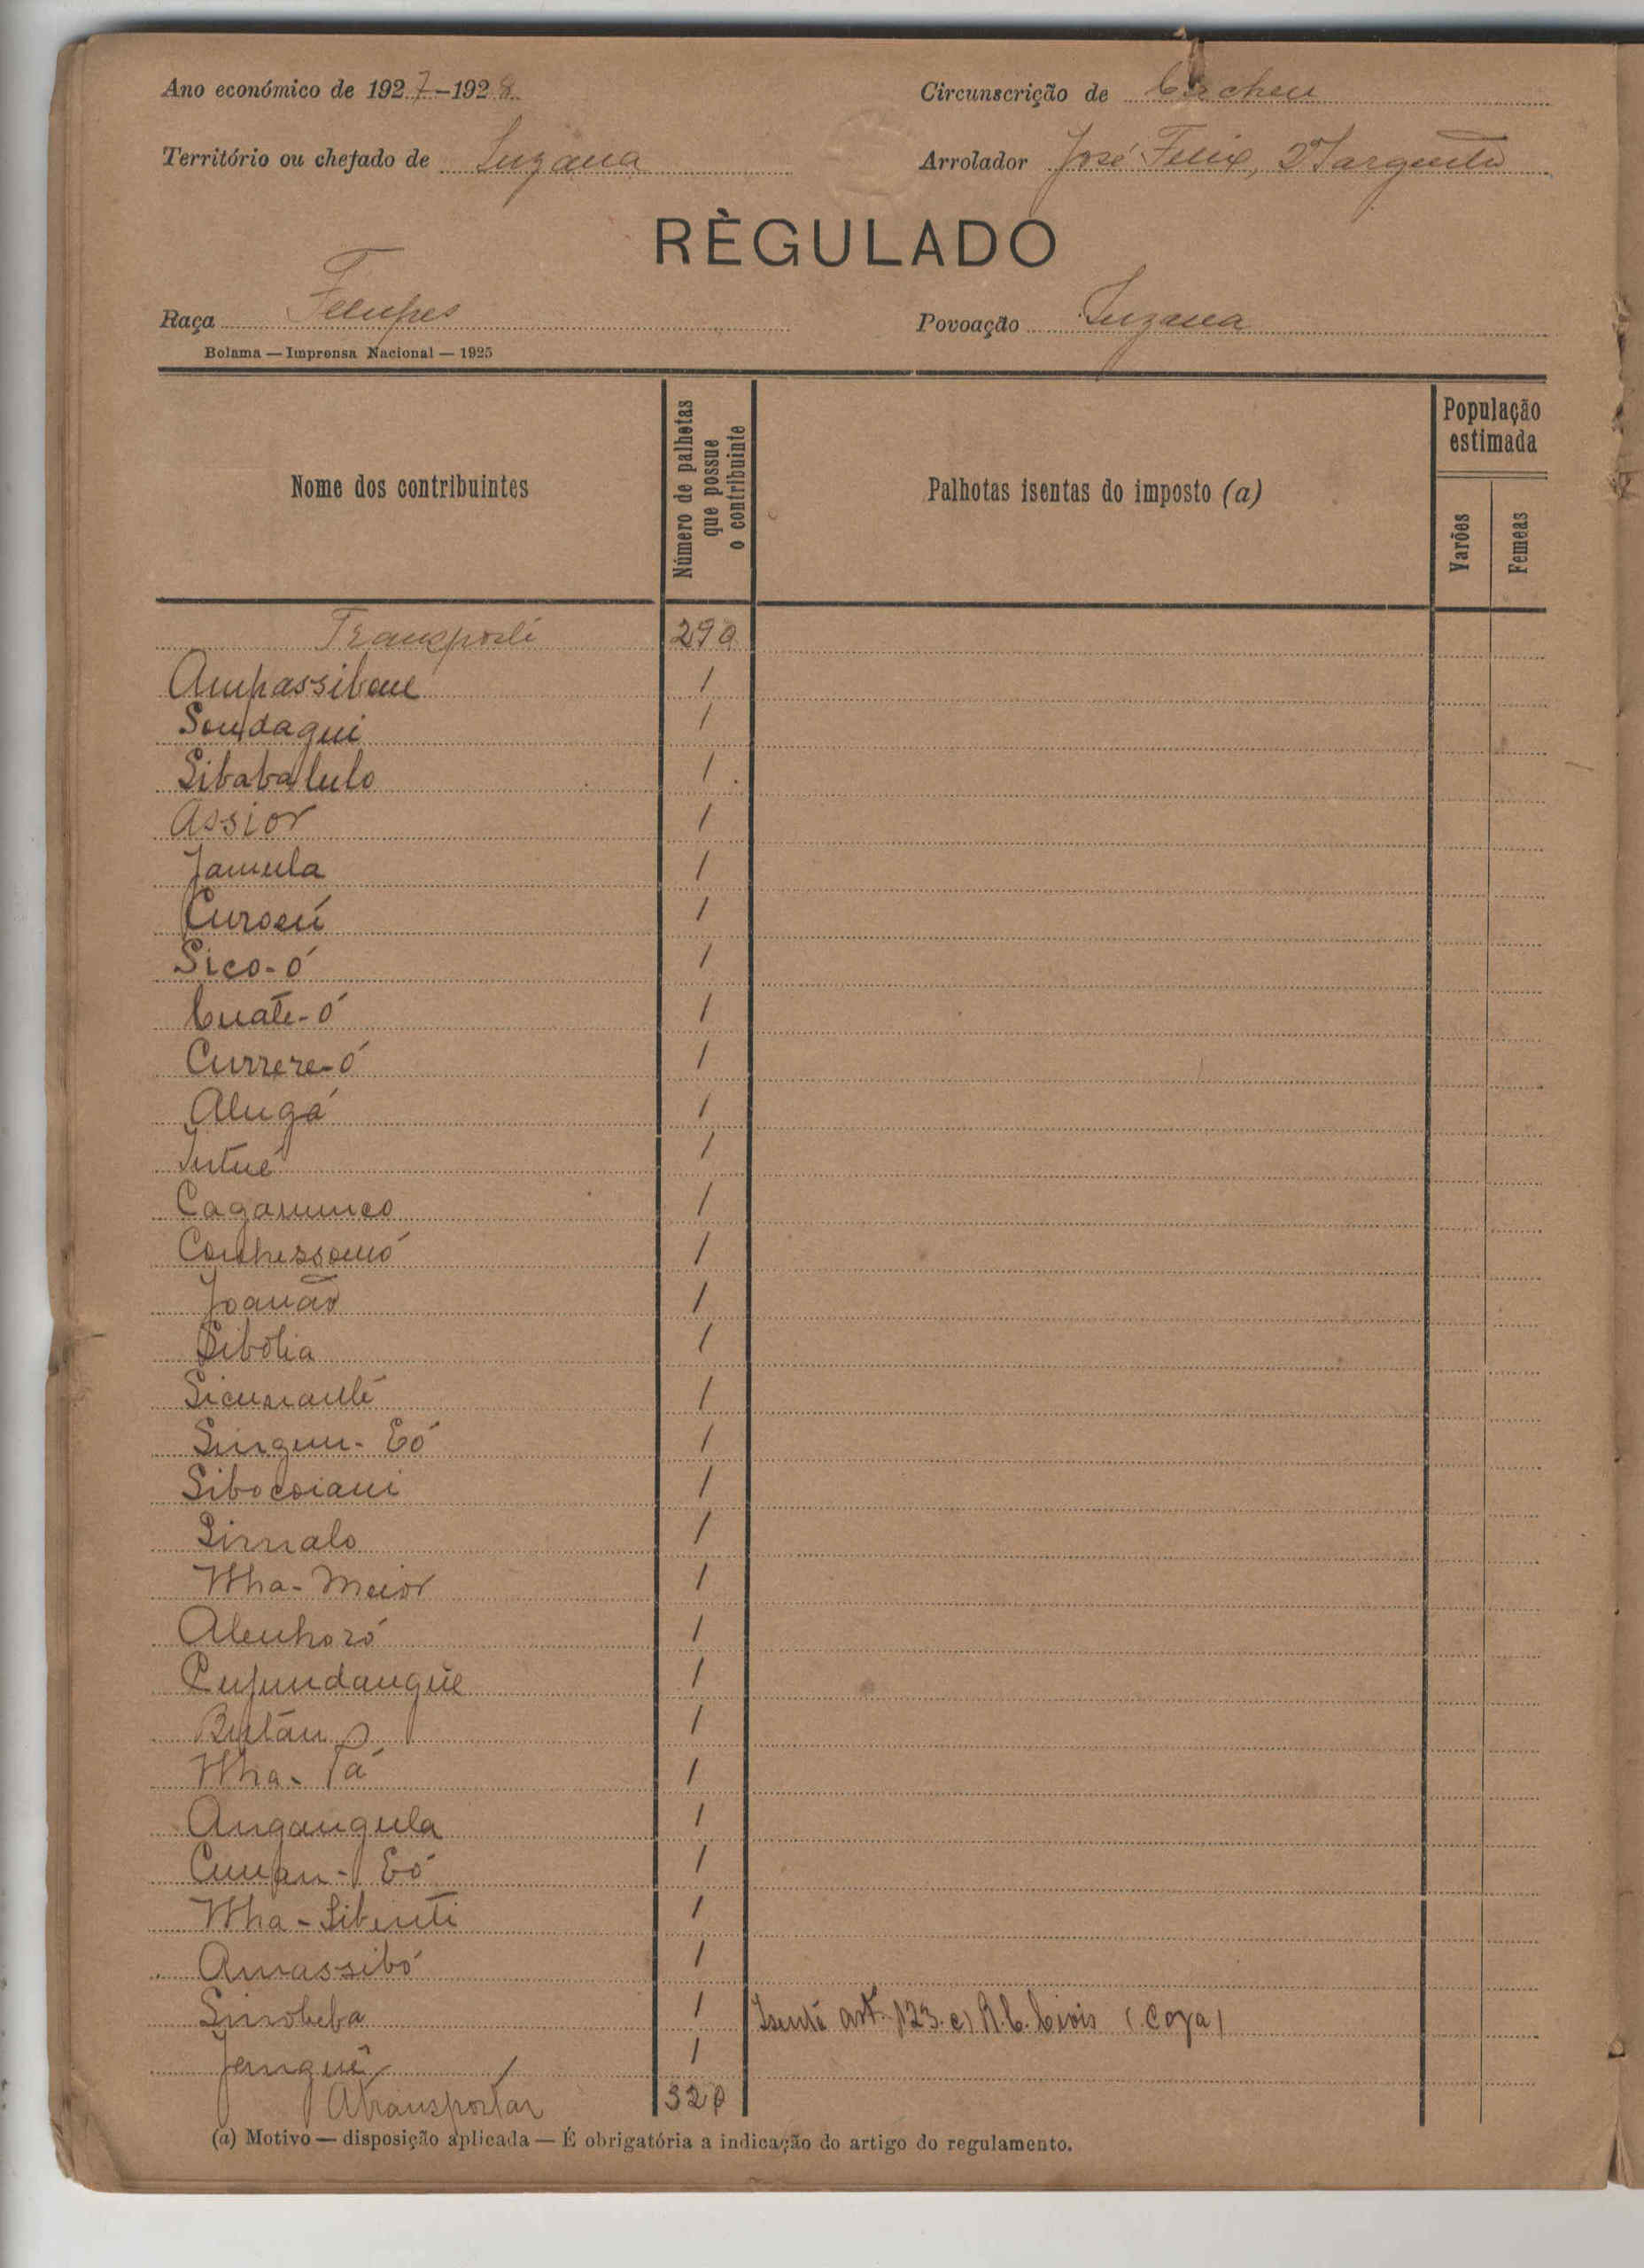 Ano económico de 1927-1928
Circunscrição de Cacheu
Território ou chefado de Suzana
Arrolador José Felix, 2º Sargento
RÈGULADO
Raça Felupes
Povoação Suzana
Bolama — Imprensa Nacional — 1925
Nome dos contribuintes
Número de palhotas que possue o contribuinte
Palhotas isentas do imposto (a)
População estimada
Varões
Femeas
Transporte 290
Ampassibane 1
Sondagui 1
Sibabalulo 1
Assior 1
Jamula 1
Curocú 1
Sico-ó 1
Cuate-ó 1
Currere-ó 1
Alugá 1
Jutué 1
Cagamunco 1
1
Joanão 1
Sibólia 1
1
Singuu-Eó 1
Sibocoiani 1
Sirnalo 1
Nha-Meior 1
Alenhoró 1
Pupundangue 1
Butan 1
Nha-Tá 1
Angangula 1
Cunpu-Eó 1
Nha-Sibinti 1
Amassibó 1
Sinobeba 1 Isento art. 123. e) R.C. Civis (Coxa)
Jenguê 1
A transportar 320
(a) Motivo — disposição aplicada — É obrigatória a indicação do artigo do regulamento.